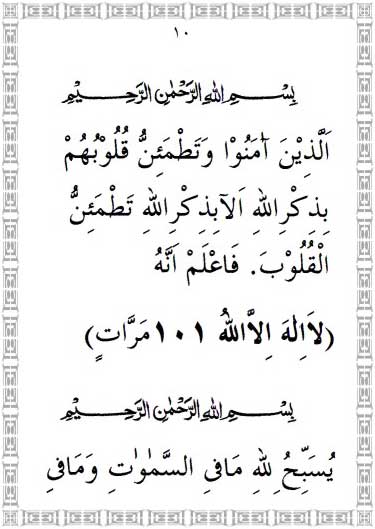 ١٠
بِسْمِ اللهِ الرَّحْمٰنِ الرَّحِيْمِ
اَلَّذِيْنَ اٰمَنُوْا وَتَطْمَئِنُّ قُلُوْبُهُمْ
بِذِكْرِ اللهِ اَلَآبِذِكْرِ اللهِ تَطْمَئِنُّ
الْقُلُوْبَ. فَاعْلَمْ اَنَّهُ
(لاَاِلٰهَ اِلاَّاللهُ ١٠١ مَرَّاتٍ)
بِسْمِ اللهِ الرَّحْمٰنِ الرَّحِيْمِ
يُسَبِّحُ لِلّٰهِ مَافِى السَّمٰوٰتِ وَمَافِى